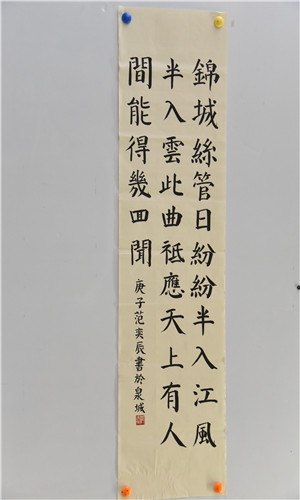 錦城絲管日紛紛半入江風
半入雲此曲祗應天上有人
間能得幾回聞
庚子范奕辰書於泉城